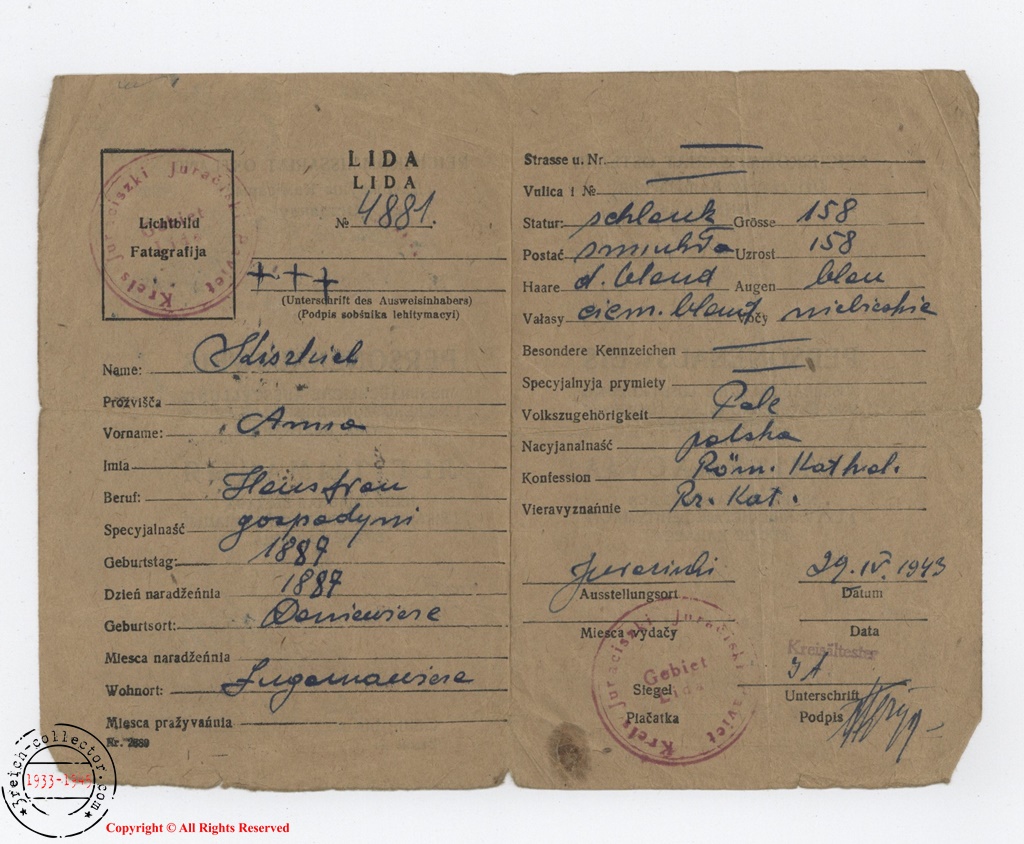 LIDA
LIDA
№ 4881.
Lichtbild
Fatagrafija
Kreis Juraciszki Juračiski Paviet
Gebiet
Lida
+++
(Unterschrift des Ausweisinhabers)
(Podpis sobśnika lehitymacyi)
Name: Kiszkiel
Prozvišča
Vorname: Anna
Imia
Beruf: Hausfrau
Specyjalnaść gospodyni
Geburtstag: 1887
Dzień naradžeńnia 1887
Geburtsort:
Miesca naradžeńnia
Wohnort:
Miesca pražyvańnia
Nr. 2669
Strasse u. Nr.
Vulica i №
Statur: schlank Grösse 158
Postać smukła Uzrost 158
Haare d. blond Augen blau
Vałasy ciem. blond Vočy niebieskie
Besondere Kennzeichen
Specyjalnyja prymiety
Volkszugehörigkeit Pole
Nacyjanalnaść polska
Konfession Röm. Kathol.
Vieravyznańnie Rz. Kat.
Juraciszki 29. IV. 1943
Ausstellungsort Datum
Miesca vydačy Data
Kreisältester
Kreis Juraciszki Juračiski Paviet
Gebiet
Lida
Siegel
Plačatka
IA
Unterschrift
Podpis
3reich-collector.com
1933-1945
Copyright © All Rights Reserved